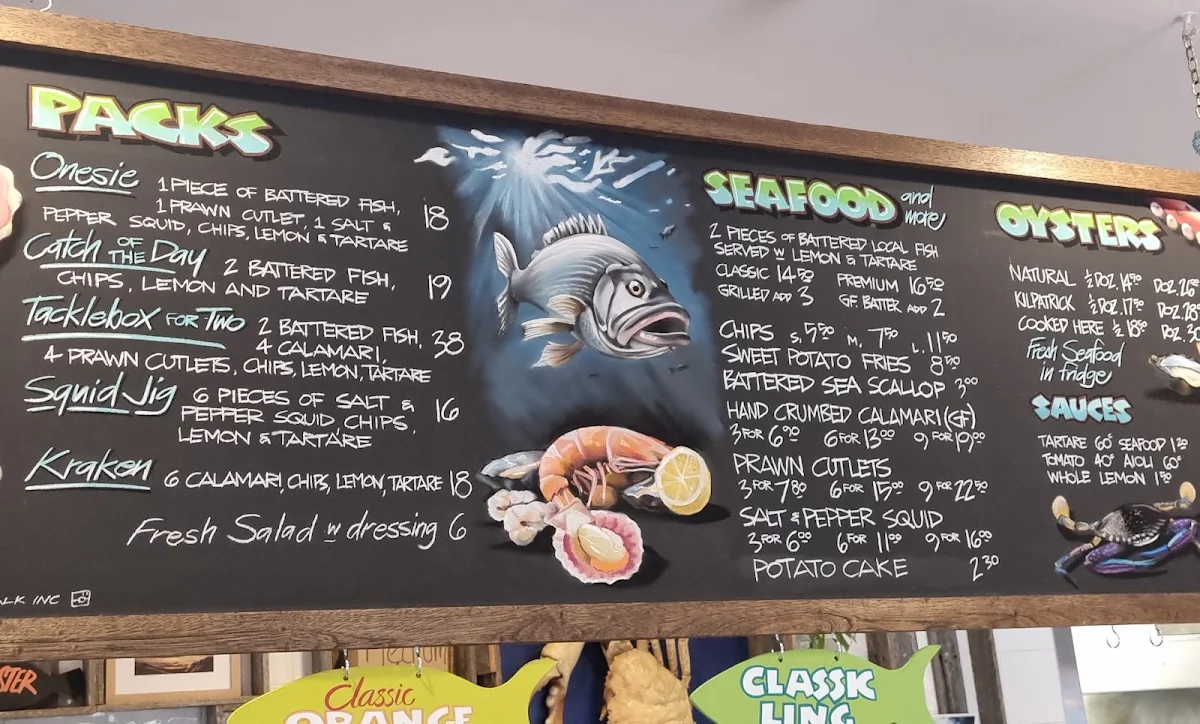 PACKS
Onesie 1 PIECE OF BATTERED FISH,
1 PRAWN CUTLET, 1 SALT & 18
PEPPER SQUID, CHIPS, LEMON & TARTARE
Catch OF THE Day 2 BATTERED FISH, 19
CHIPS, LEMON AND TARTARE
Tacklebox FOR Two 2 BATTERED FISH, 38
4 CALAMARI,
4 PRAWN CUTLETS, CHIPS, LEMON, TARTARE
Squid Jig 6 PIECES OF SALT & 16
PEPPER SQUID, CHIPS,
LEMON & TARTARE
Kraken 6 CALAMARI, CHIPS, LEMON, TARTARE 18
Fresh Salad w dressing 6
SEAFOOD and more
2 PIECES OF BATTERED LOCAL FISH
SERVED w LEMON & TARTARE
CLASSIC 14.50 PREMIUM 16.50
GRILLED ADD 3 GF. BATTER ADD 2
CHIPS S, 5.50 M, 7.50 L, 11.50
SWEET POTATO FRIES 8.50
BATTERED SEA SCALLOP 3.00
HAND CRUMBED CALAMARI (GF)
3 FOR 6.90 6 FOR 13.00 9 FOR 19.00
PRAWN CUTLETS
3 FOR 7.80 6 FOR 15.00 9 FOR 22.50
SALT & PEPPER SQUID
3 FOR 6.00 6 FOR 11.00 9 FOR 16.00
POTATO CAKE 2.30
OYSTERS
NATURAL ½ DOZ. 14.50 DOZ.
KILPATRICK ½ DOZ. 17.50 DOZ.
COOKED HERE ½ 18.50 DOZ.
Fresh Seafood
in fridge
SAUCES
TARTARE 60c SEAFOOD
TOMATO 40c AIOLI 60c
WHOLE LEMON 1.50
INC
Classic
ORANGE
CLASSIC
LING